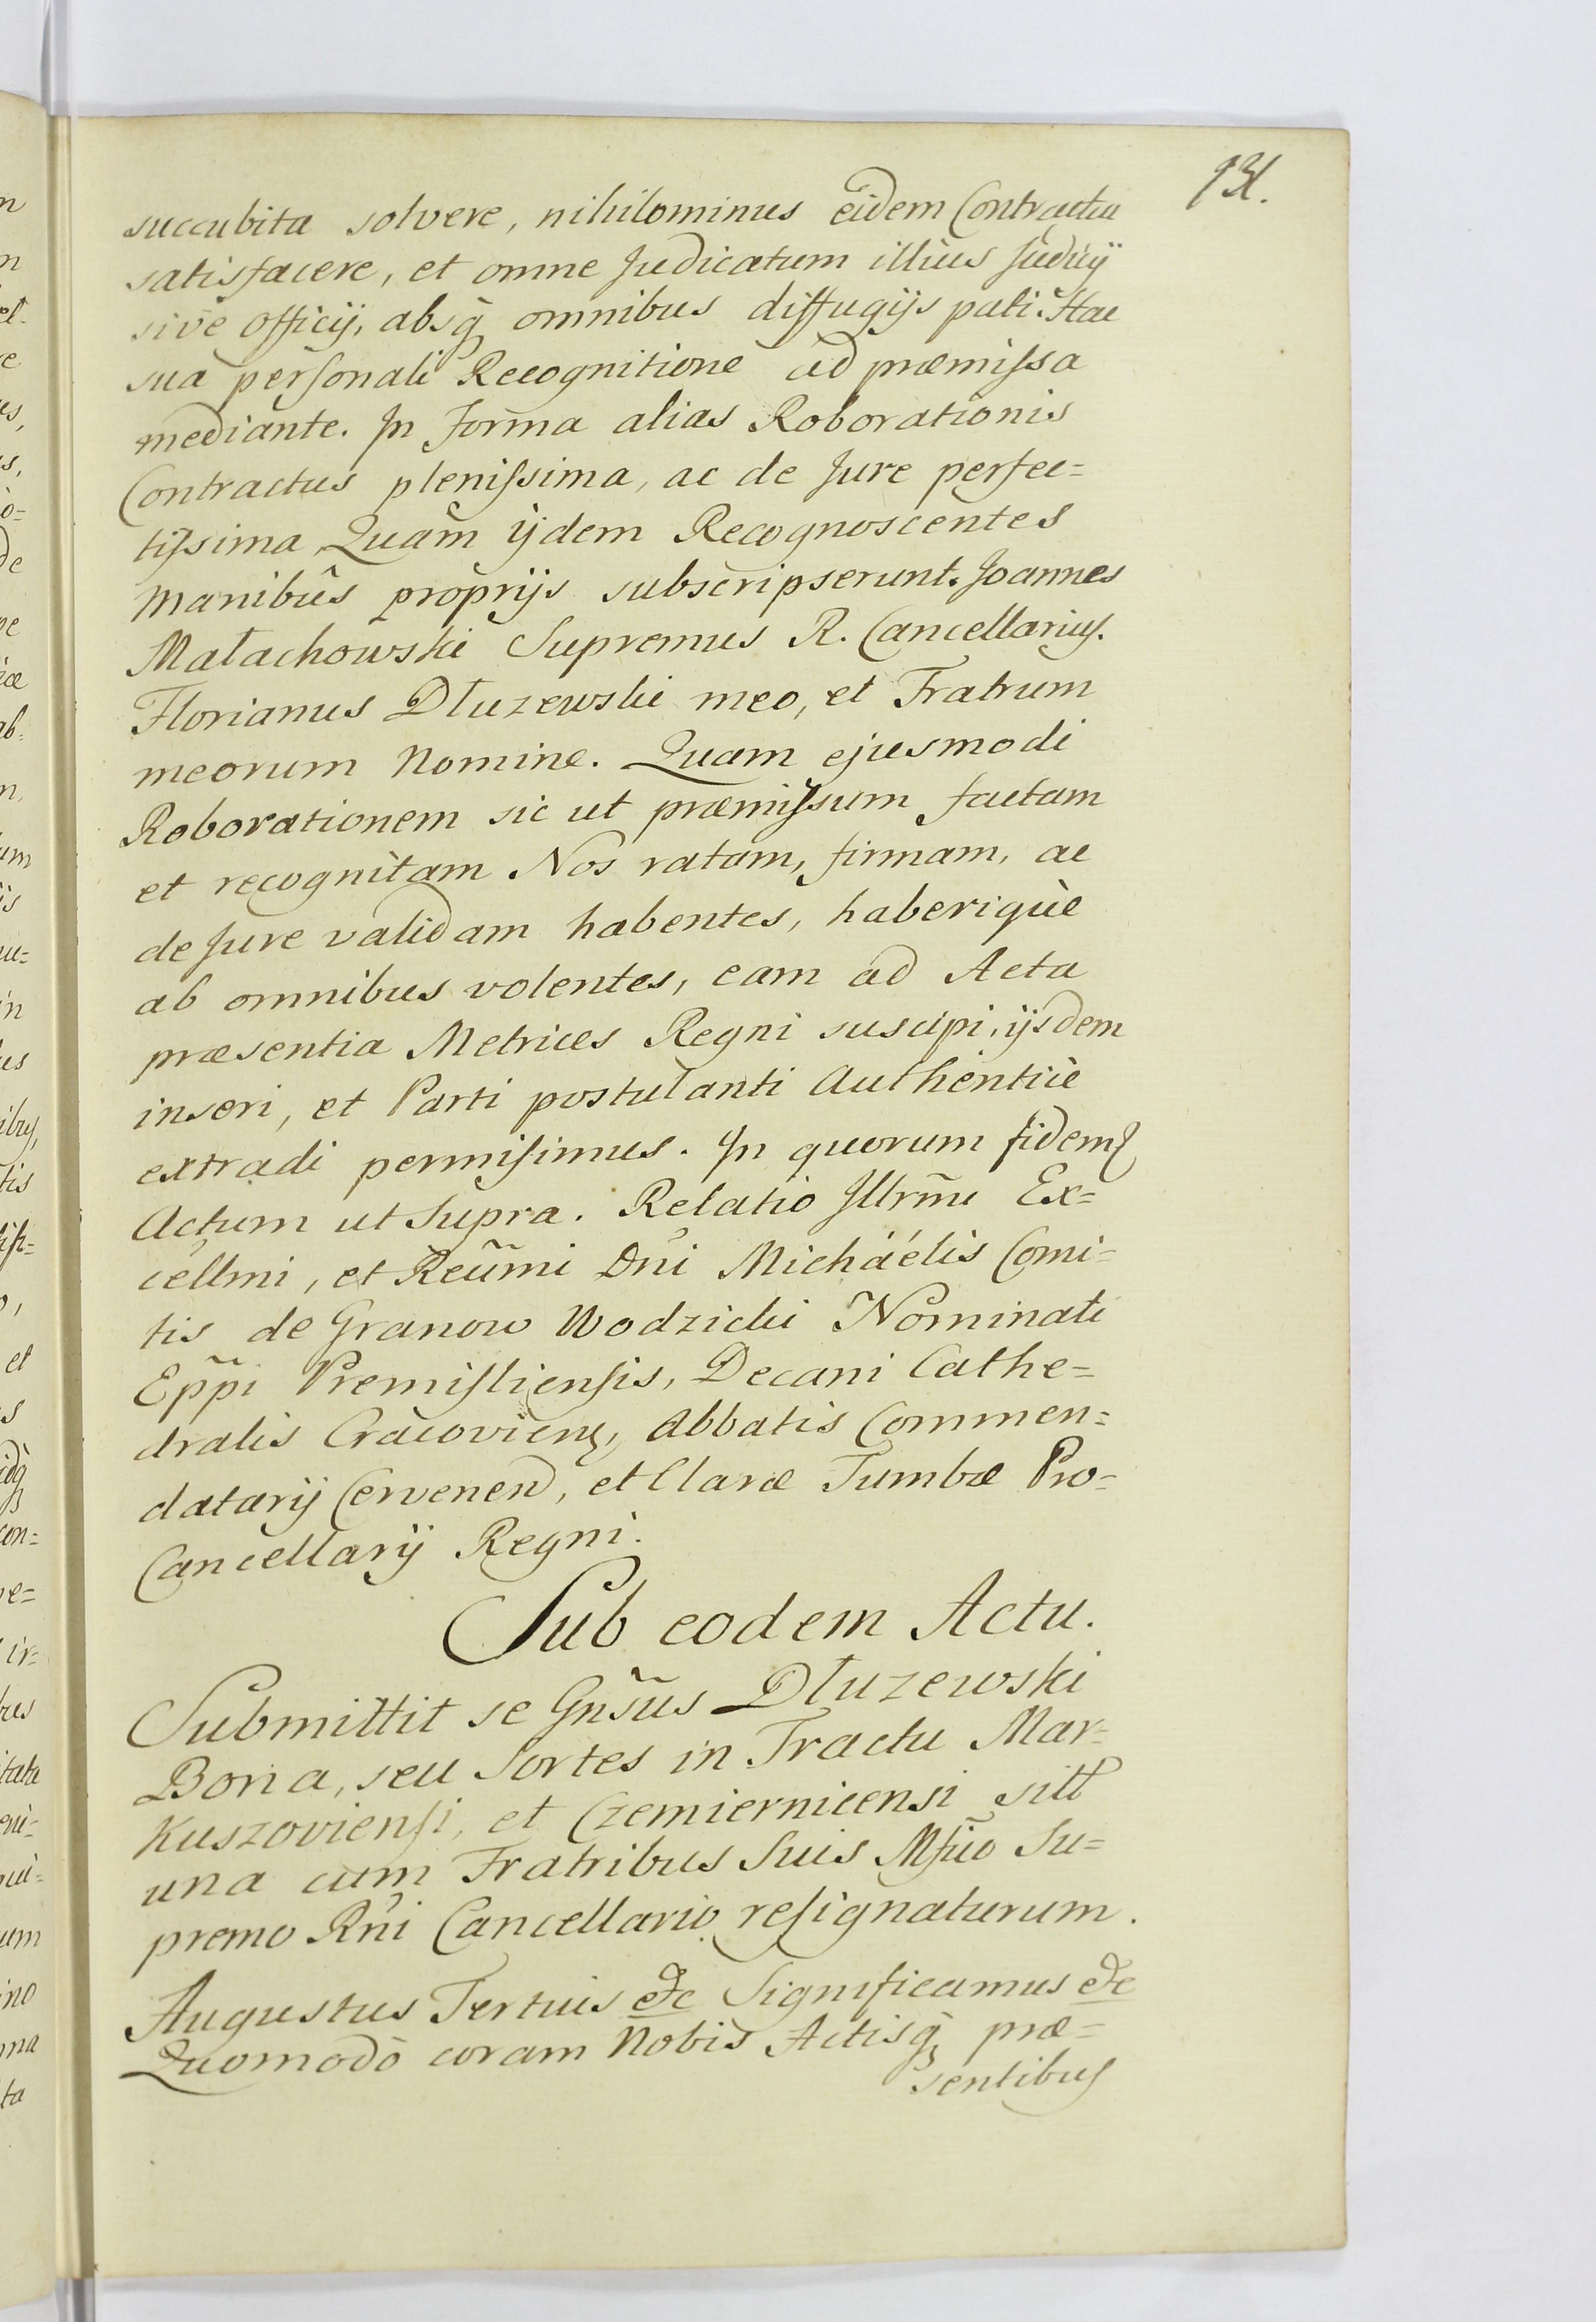 131.
succubita solvere, nihilominus eidem Contractui
satisfacere, et omne Judicatum illius Judicij
sivè officij, absq̀ omnibus diffugijs pati. Hac
sua perſonali Recognitione ad præmiſsa
mediante. In forma alias Roborationis
Contractus pleniſsima, ac de Jure perfec=
tiſsima Quam ijdem Recognoscentes
Manibûs proprijs subscripserunt. Joannes
Małachowski Supremus R. Cancellarius.
Florianus Dłuzewski meo, et Fratrum
meorum Nomine. Quam ejusmodi
Roborationem sic ut præmiſsum factam
et recognitam Nos ratam, firmam, ac
de Jure validam habentes, haberiquè
ab omnibus volentes, eam ad Acta
præsentia Metrices Regni suscipi, ijsdem
inseri, et Parti postulanti Authenticè
extradi permiſimus. In quorum fidem
Actum ut Supra. Relatio Jllrm̃i Ex=
cellmi, et Reũmi Dñi Michaélis Comi=
tis de Granow Wodzicki Nominati
Epp̃i Premiſlienſis, Decani Cathe=
dralis Cracovien, Abbatis Commen=
datarij Cervenen, et Claræ Tumbæ Pro=
Cancellarij Regni.
Sub eodem Actu.
Submittit se Gñsus Dłuzewski
Bona, seu Sortes in Tractu Mar=
Kuszovienſi, et Czemiernicensi sitt
una cum Fratribus Suis Mfico Su=
premo Rñi Cancellario reſignaturum.
Augustus Tertius &c Significamus &c
Quomodò coram Nobis Actisq̀ præ=
sentibus